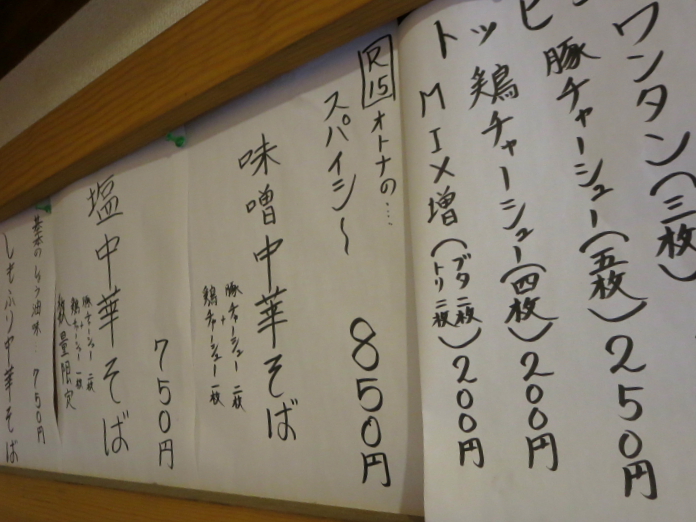 トッピ
ワンタン(三枚)
豚チャーシュー(五枚)250円
鶏チャーシュー(四枚)200円
MIX増(ブタ二枚
トリ二枚)200円
R15 オトナの…
スパイシ〜
850円
味噌中華そば
豚チャーシュー 二枚
鶏チャーシュー 一枚
750円
塩中華そば
豚チャーシュー 二枚
鶏チャーシュー 一枚
数量限定
基本のしょう油味… 750円
しもふり中華そば